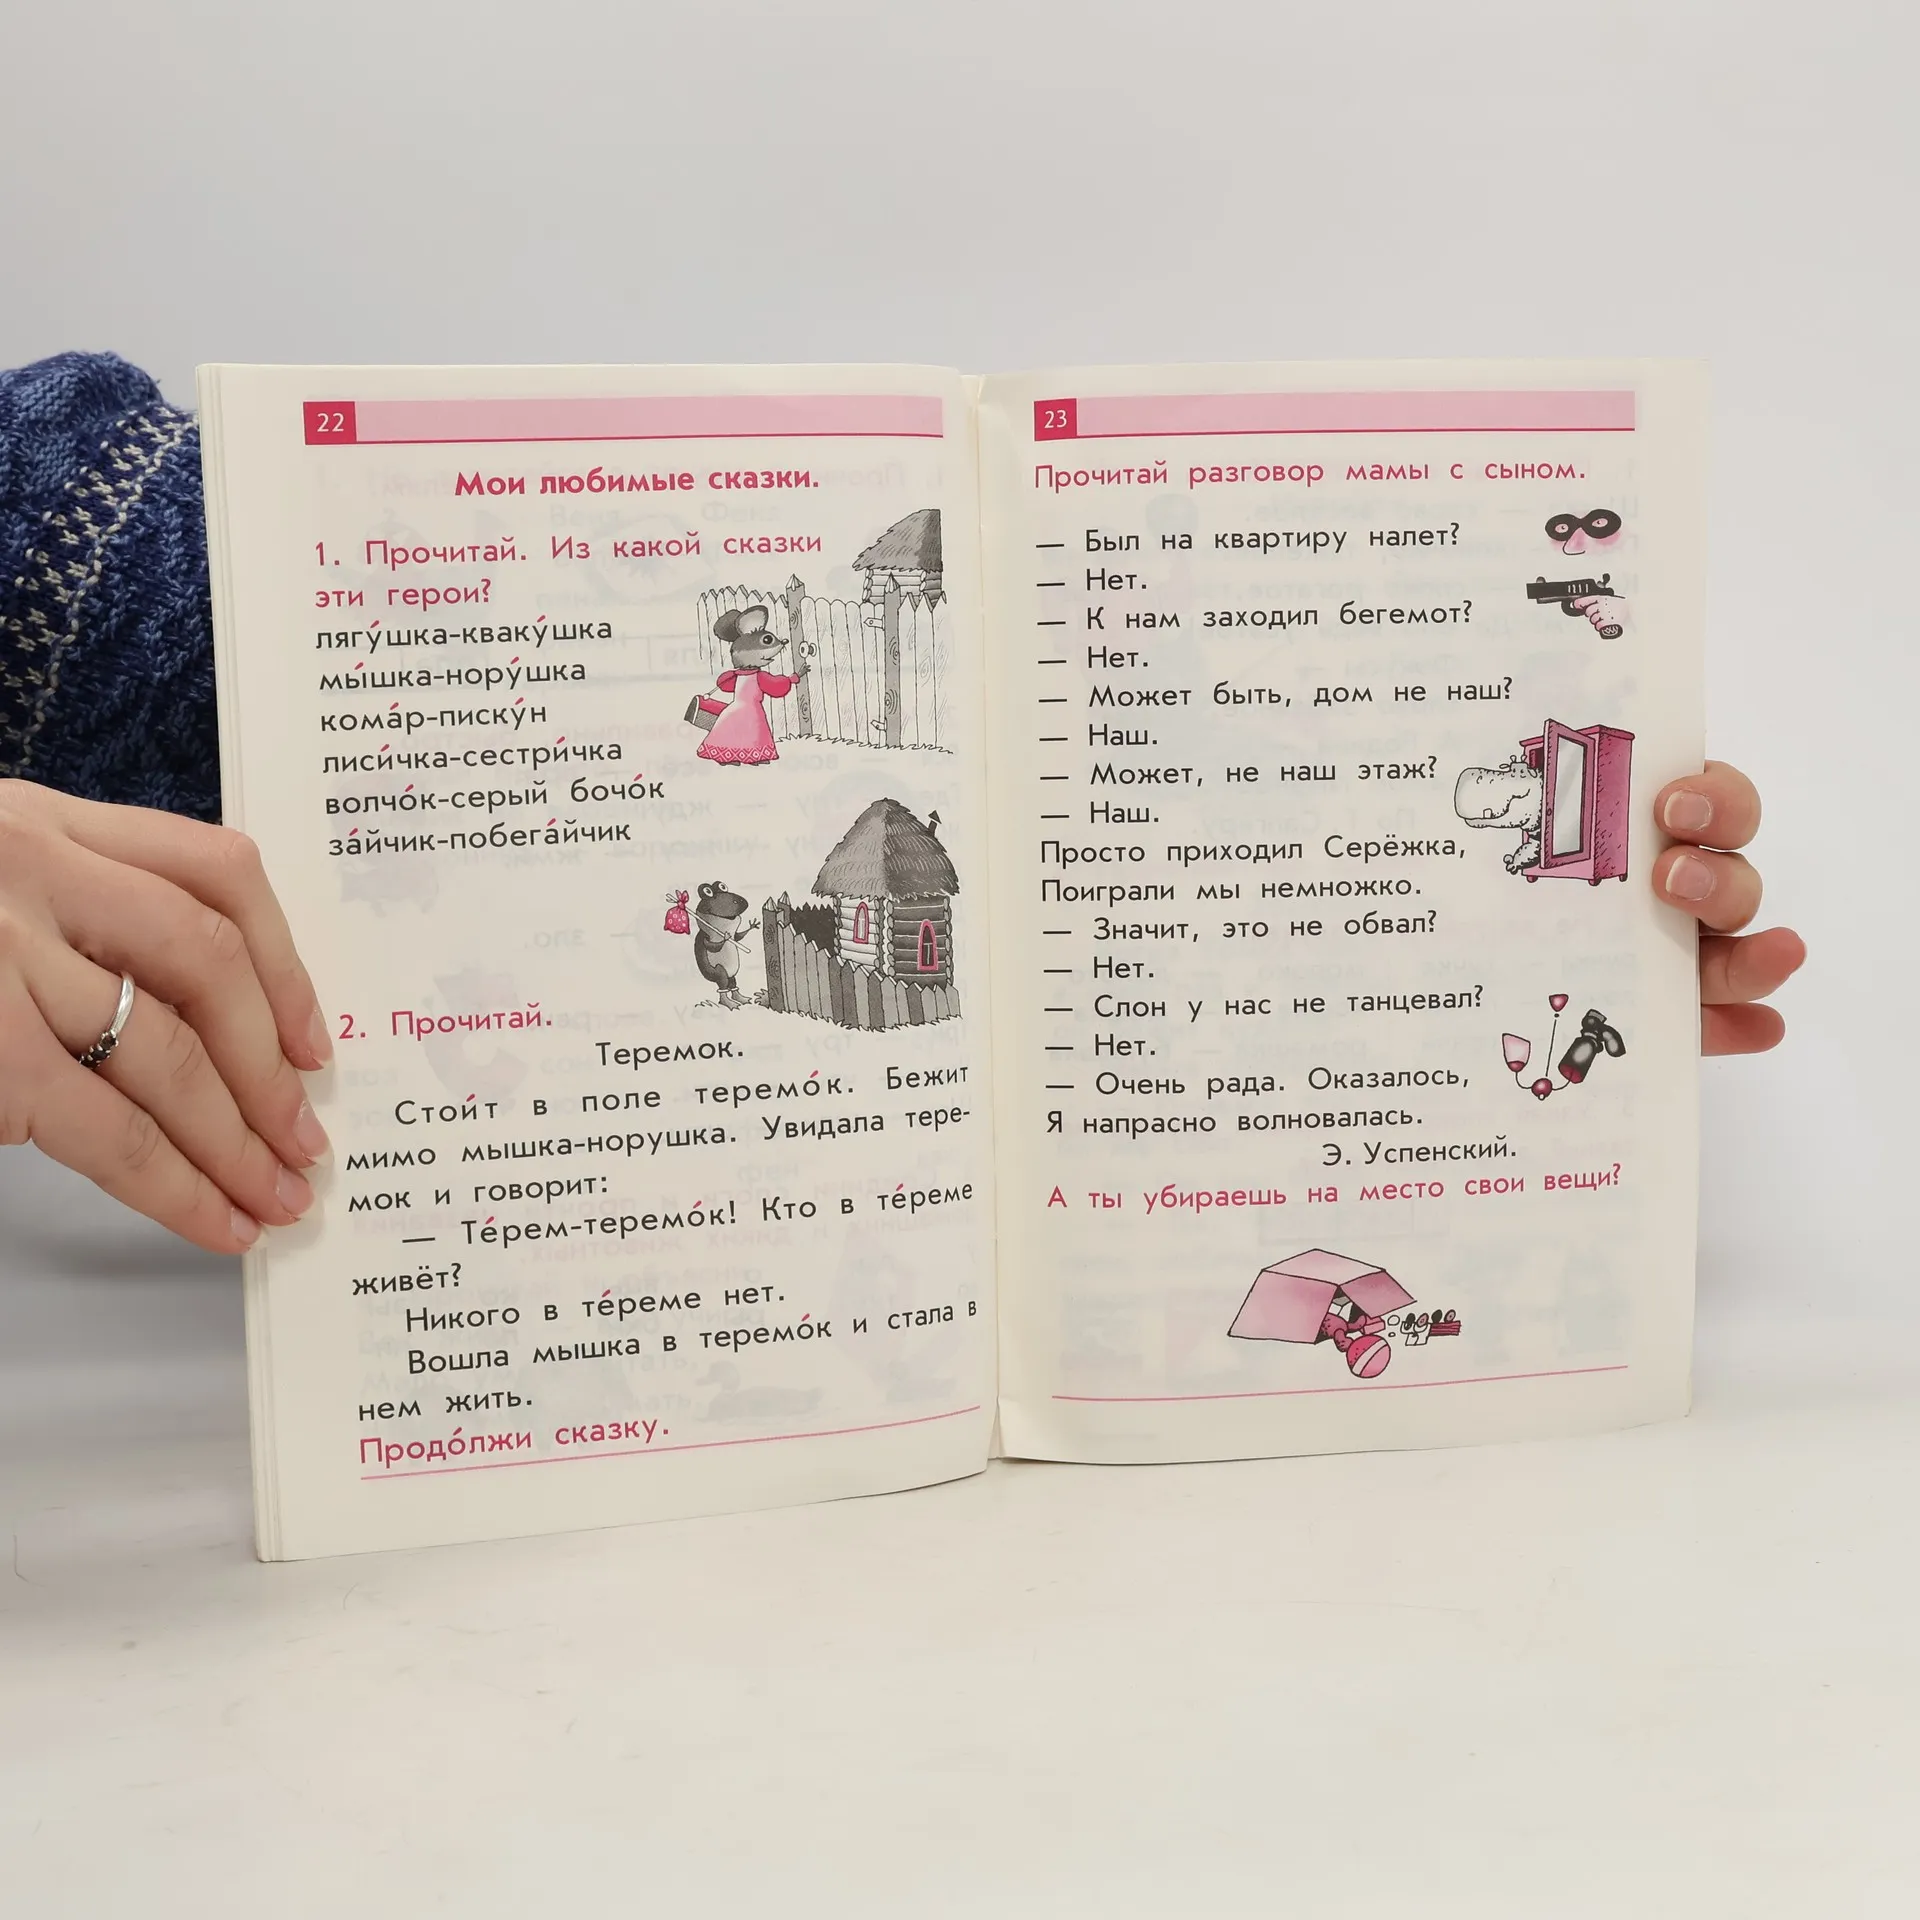 22
Мои любимые сказки.
1. Прочитай. Из какой сказки
эти герои?
лягу́шка-кваку́шка
мы́шка-нору́шка
кома́р-писку́н
лиси́чка-сестри́чка
волчо́к-серый бочо́к
за́йчик-побега́йчик
2. Прочитай.
Теремок.
Стои́т в поле теремо́к. Бежит
мимо мышка-норушка. Увидала тере-
мок и говорит:
— Те́рем-теремо́к! Кто в те́реме
живёт?
Никого в те́реме нет.
Вошла мышка в теремо́к и стала в
нем жить.
Продо́лжи сказку.
23
Прочитай разговор мамы с сыном.
— Был на квартиру налет?
— Нет.
— К нам заходил бегемот?
— Нет.
— Может быть, дом не наш?
— Наш.
— Может, не наш этаж?
— Наш.
Просто приходил Серёжка,
Поиграли мы немножко.
— Значит, это не обвал?
— Нет.
— Слон у нас не танцевал?
— Нет.
— Очень рада. Оказалось,
Я напрасно волновалась.
Э. Успенский.
А ты убираешь на место свои вещи?